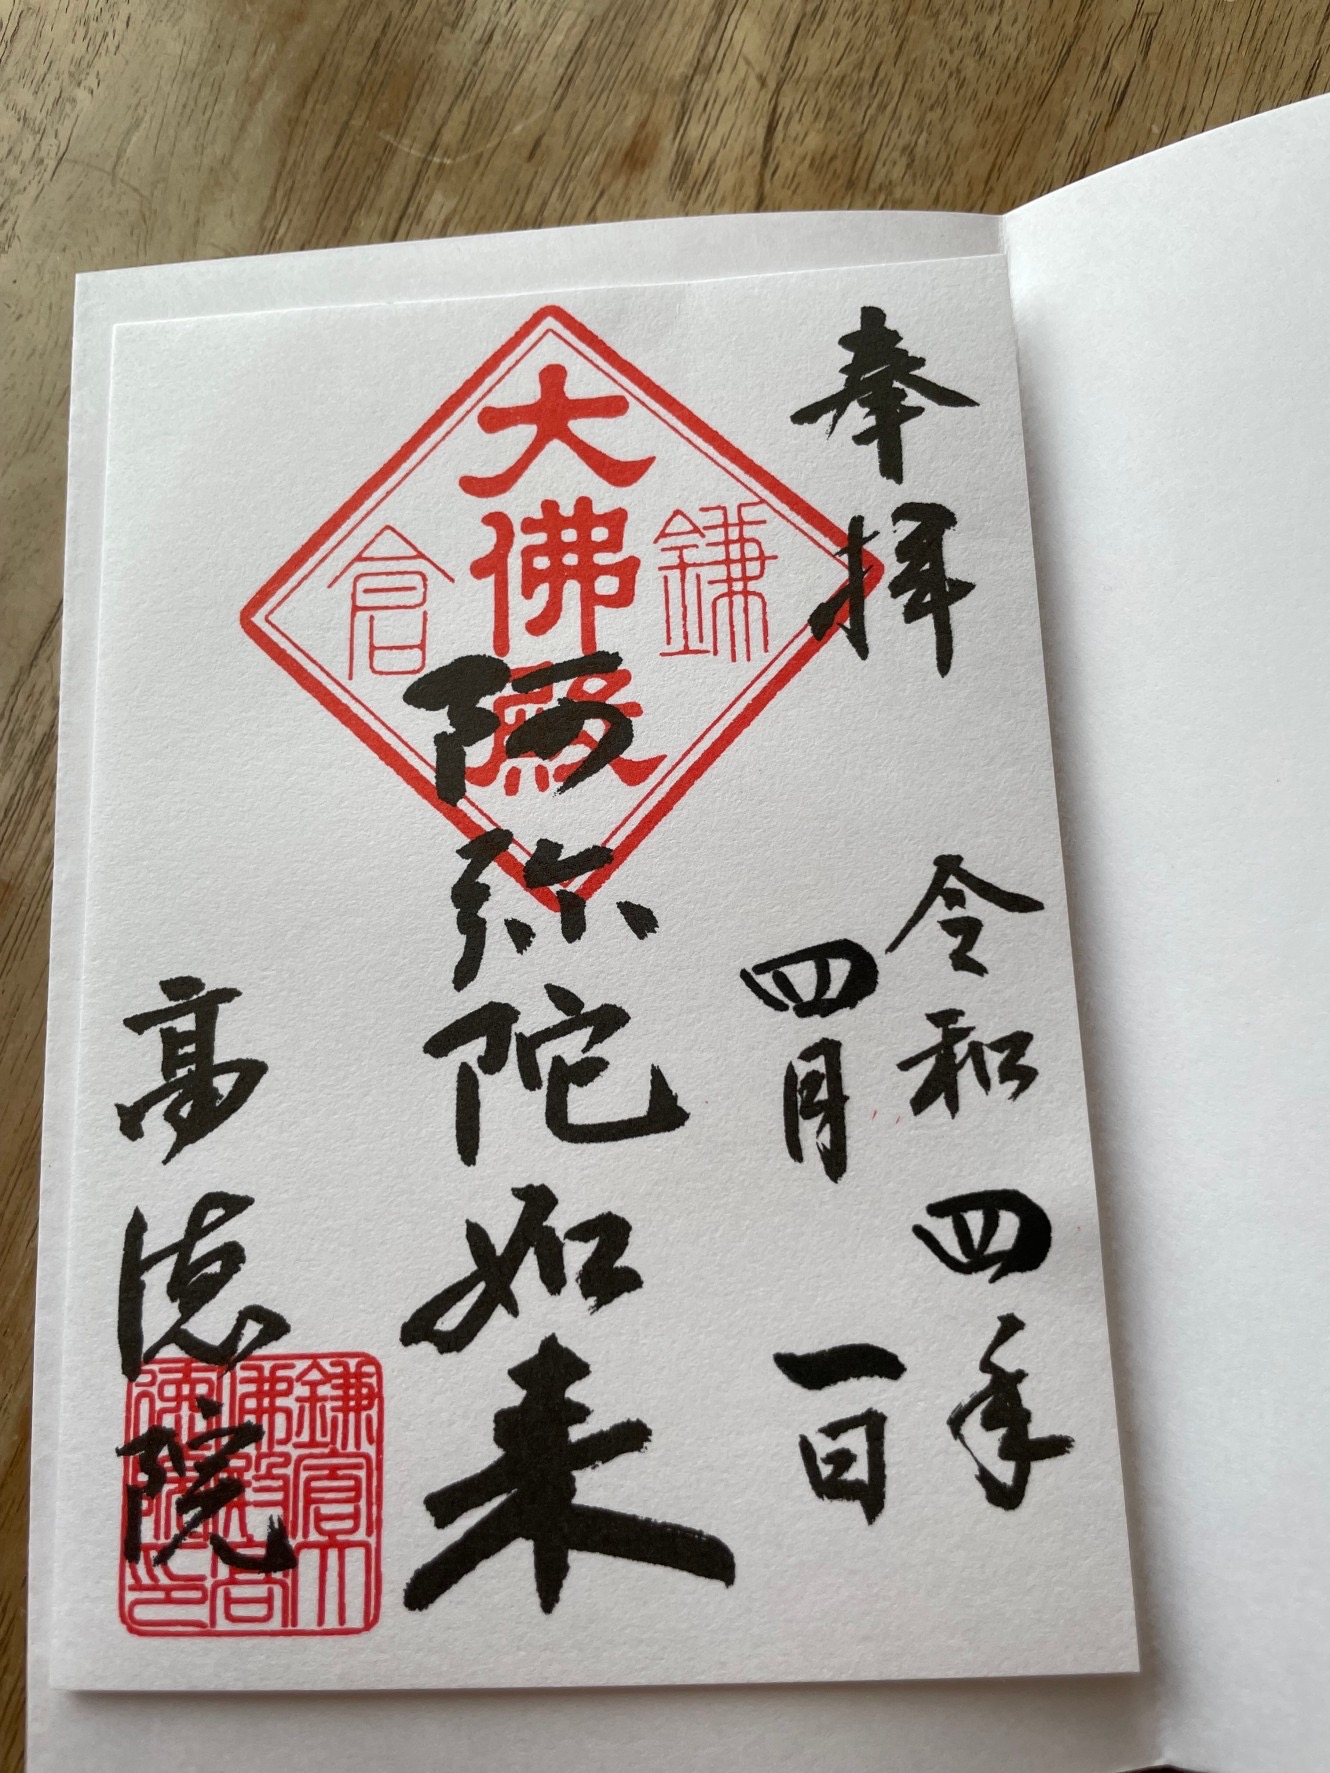 奉拝
令和四年
四月一日
鎌倉
大佛殿
阿弥陀如来
高徳院
鎌倉大
佛殿高
徳院印